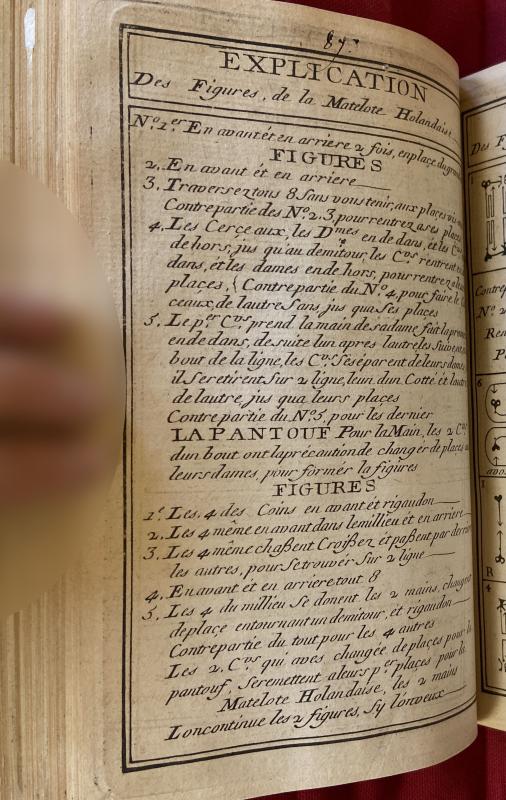 87.
EXPLICATION
Des Figures, de la Matelote Holandaise
N.º 1.er En avant ét en arriere 2 fois, en plaçe du grand
FIGURES
2. En avant ét en arriere
3. Traversez tous 8 Sans vous tenir, aux plaçes vis
Contrepartie des Nº. 2. 3, pour rentrez a ses plaçes
4. Les Cerçeaux, les Dmes en de dans, ét les Crs
de hors, jus qu'au demi tour, les Crs rentrent en
dans, ét les dames en de hors, pour rentrez a leurs
plaçes, Contrepartie du Nº 4, pour faire le
ceaux, de lautre Sans, jus qua Ses plaçes
5. Le p.er Crs prend la main de sadame, fait la prome
en de dans, de suite lun aprés lautre les Suivent,
bout de la ligne, les Crs Se séparent de leurs dames
il Se retirent Sur 2 ligne, leun dun Cotté, ét lautre
de lautre, jus qua leurs plaçes
Contrepartie du Nº 5, pour les dernier
LA PANTOUF Pour la Main, les 2 Crs
dun bout ont la précaution de changer de plaçes
leurs dames, pour former la figures
FIGURES
1º. Les, 4 des Coins en avant ét rigaudon
2. Les 4 même en avant dans lemillieu ét en arriere
3. Les 4 même chaßent Croißez ét paßent par derrier
les autres, pour Se trouver Sur 2 ligne
4. En avant ét en arriere tout 8
5. Les 4 du millieu Se donent les 2 mains, changent
de plaçe en tournant un demitour, ét rigaudon
Contrepartie du tout pour les 4 autres
Les 2 Crs qui aves changée de plaçes pour la
pantouf, Se remettent a leurs p.er plaçes pour la
Matelote Holandaise, les 2 mains
Lon continue les 2 figures, Sy l'on veux